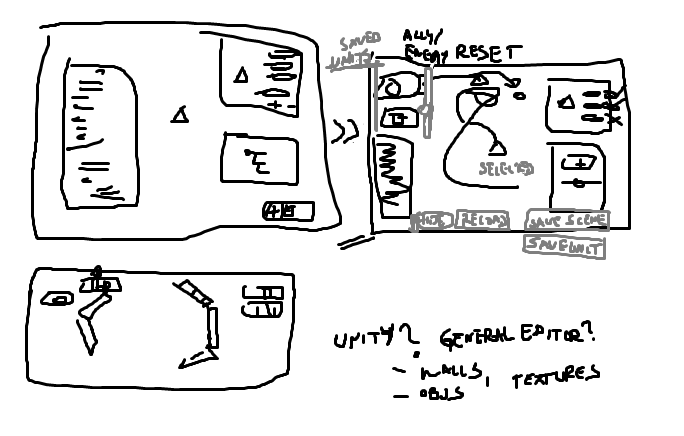 SAVED
UNITS
ALLY/
ENEMY RESET
SELECTED
RECORD
SAVE SCENE
SAVE UNIT
UNITY? GENERAL EDITOR?
- WALLS, TEXTURES
- OBJS